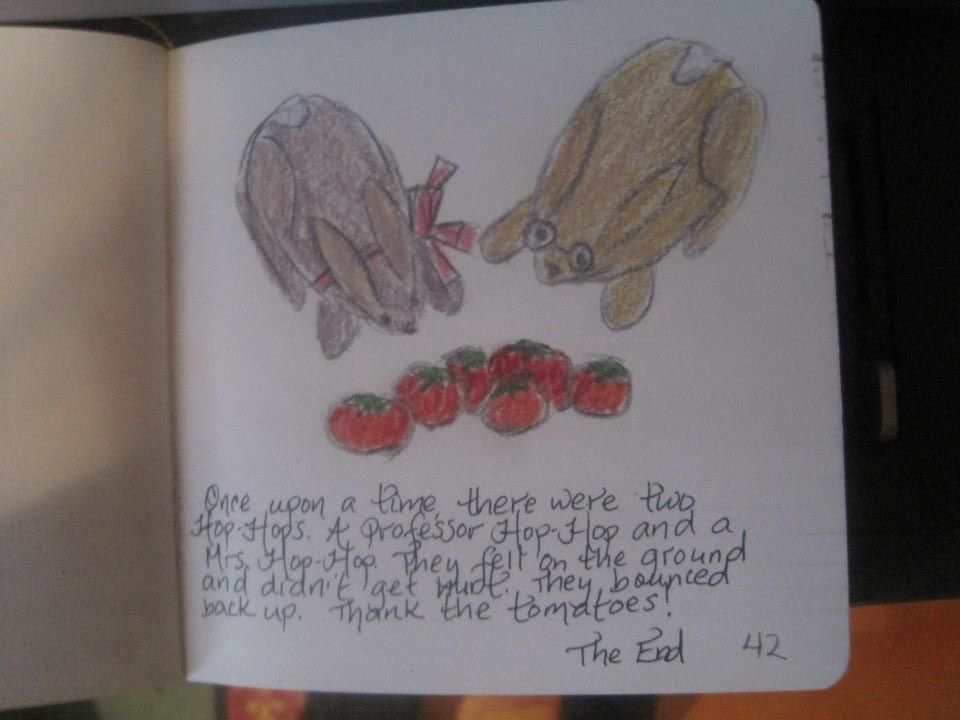 Once upon a time, there were two
Hop-Hops. A Professor Hop-Hop and a
Mrs. Hop-Hop. They fell on the ground
and didn't get hurt. They bounced
back up. Thank the tomatoes!
The End 42